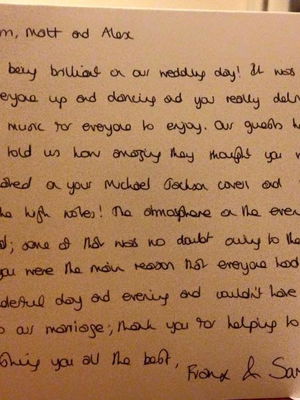 m, Matt and Alex
being brilliant on our wedding day! It was
everyone up and dancing and you really deliv
music for everyone to enjoy. Our guests h
told us how amazing they thought you w
on your Michael Jackson covers and
the high notes! The atmosphere in the eve
; some of that was no doubt owing to the
you were the main reason that everyone had
derful day and evening and couldn't have
to our marriage; thank you for helping to
shing you all the best, Franx & Sar